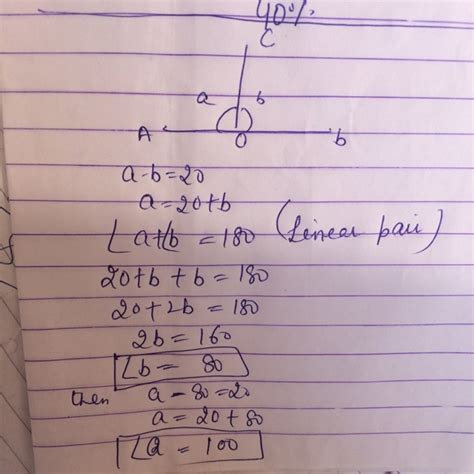 40%
C
a b
A O b
a-b=20
a=20+b
∠a+∠b = 180 (Linear pair)
20+b+b=180
20+2b=180
2b=160
∠b = 80
then a-80=20
a=20+80
∠a = 100